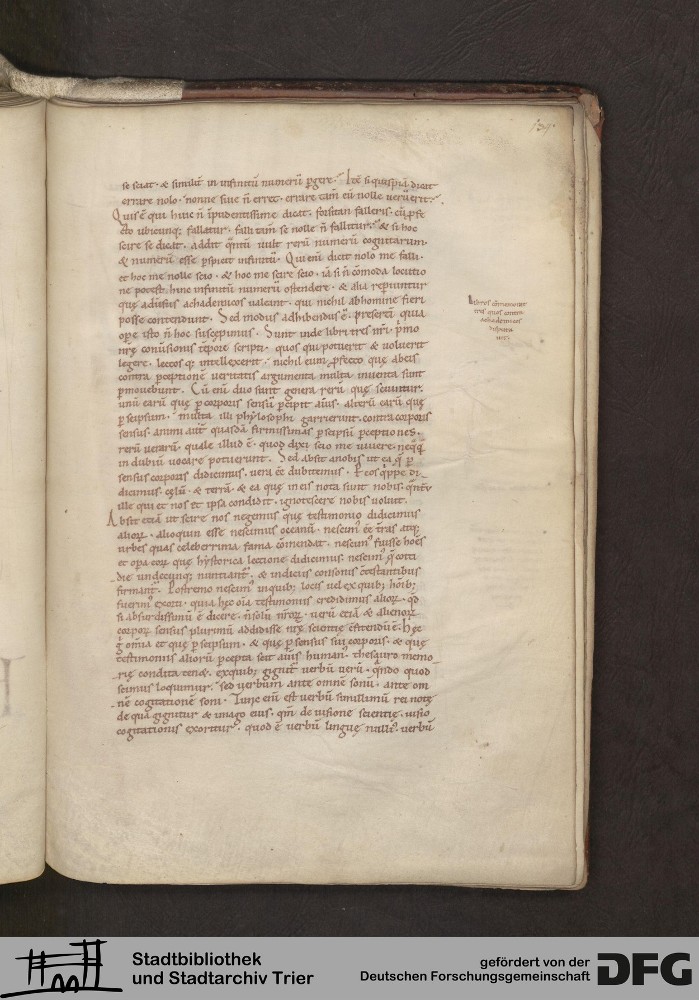 139
se sciat · & similit̄ in infinitū numerū ꝑgere · Itē si quispiā dicat
errare nolo · nonne siue n̄ erret · errare tam̄ eū nolle verū erit ·
Quis ē qui huic n̄ īpudentissime dicat · forsitan falleris · cū ꝓfe
cto ubicunq; fallatur · falli tam̄ se nolle n̄ fallitur · & si hoc
scire se dicat · addit qͣntū uult rerū numerū cognitarum ·
& numerū esse ꝑspicit infinitū · Qui enī dicit nolo me falli ·
et hoc me nolle scio · & hoc me scire scio · iā si n̄ cōmoda locutio
ne potest hinc infinitū numerū ostendere · & alia reꝑiuntur
quę aduersus achademicos ualeant · qui nichil ab homine sciri
posse contendunt · Sed modus adhibendus ē · presertī quia
opͤe isto n̄ hoc suscepimus · Sunt inde libri tres nr̄i · pͥmo
nrę̄ conuersionis tēpore scripti · quos qui potuerit & uoluerit
legere · lectosq; intellexerit · nichil eum ꝓfecto quę ab eis
contra ꝑceptionē veritatis argumenta multa inuenta sunt
ꝑmouebunt · Cū enī duo sint genera rerū quę sciuntur ·
unū earū quę ꝑ corporis sensū ꝑcipit anīs · alterū earū quę
ꝑ seipsum · multa illi phylosophi garrierunt contra corporis
sensus · animi aut̄ quasdā firmissimas ꝑ seipsū ꝑceptiones
rerū verarū · quale illud ē · quod dixi scio me uiuere · neqͣqͣ
in dubiū uocare potuerunt · Sed absit a nobis ut ea quę ꝑ
sensus corporis didicimus · vera eē dubitemus · ꝑ eos qͥppe di-
dicimus · cęlū · & terrā · & ea quę in eis nota sunt nobis · qͣntū
ille qui et nos et ipsa condidit · ignotescere nobis voluit ·
Absit etiā ut scire nos negemus quę testimonio didicimus
alioꝝ · alioquin esse nescimus oceanū · nescim᷒ eē tras atq;
urbes quas celeberrima fama cōmendat · nescim᷒ fuisse hoēs
et opa eoꝝ quę hystorica lectione didicimus · nescim᷒ quę coti
die undecunq; nuntiant᷒ · & indiciis consonis cōtestantibus
firmant᷒ · Postremo nescim᷒ in quib; locis vel ex quib; hōib;
fuerim᷒ exorti · quia hęc oīa testimoniis credidimus alioꝝ · qd̄
si absurdissimū ē dicere · n̄ solū nr̄oꝝ · verū etiā & alienoꝝ
corporꝝ sensus plurimū addidisse nrę̄ scientię cōfitendū ē · Hęc
gͦ omīa et quę ꝑ seipsum · & quę ꝑ sensus sui corporis · & quę
testimoniis aliorū ꝑcepta scit anīus human᷒ · thesauro memo
rię condita tenet · ex quib; gignit᷒ verbū verū · qͣndo quod
scimus loquimur · sed verbum ante omnē sonū · ante om
nē cogitationē soni · Tunc enī est verbū simillimū rei notę
de qua gignitur & imago eius · qm̄ de uisione scientię · uisio
cogitationis exoritur · quod ē verbū linguę nulli᷒ · verbū
Libros cōmemorat
tres quos contra
achademicos
disputa
uit ·
Stadtbibliothek
und Stadtarchiv Trier
gefördert von der
Deutschen Forschungsgemeinschaft
DFG